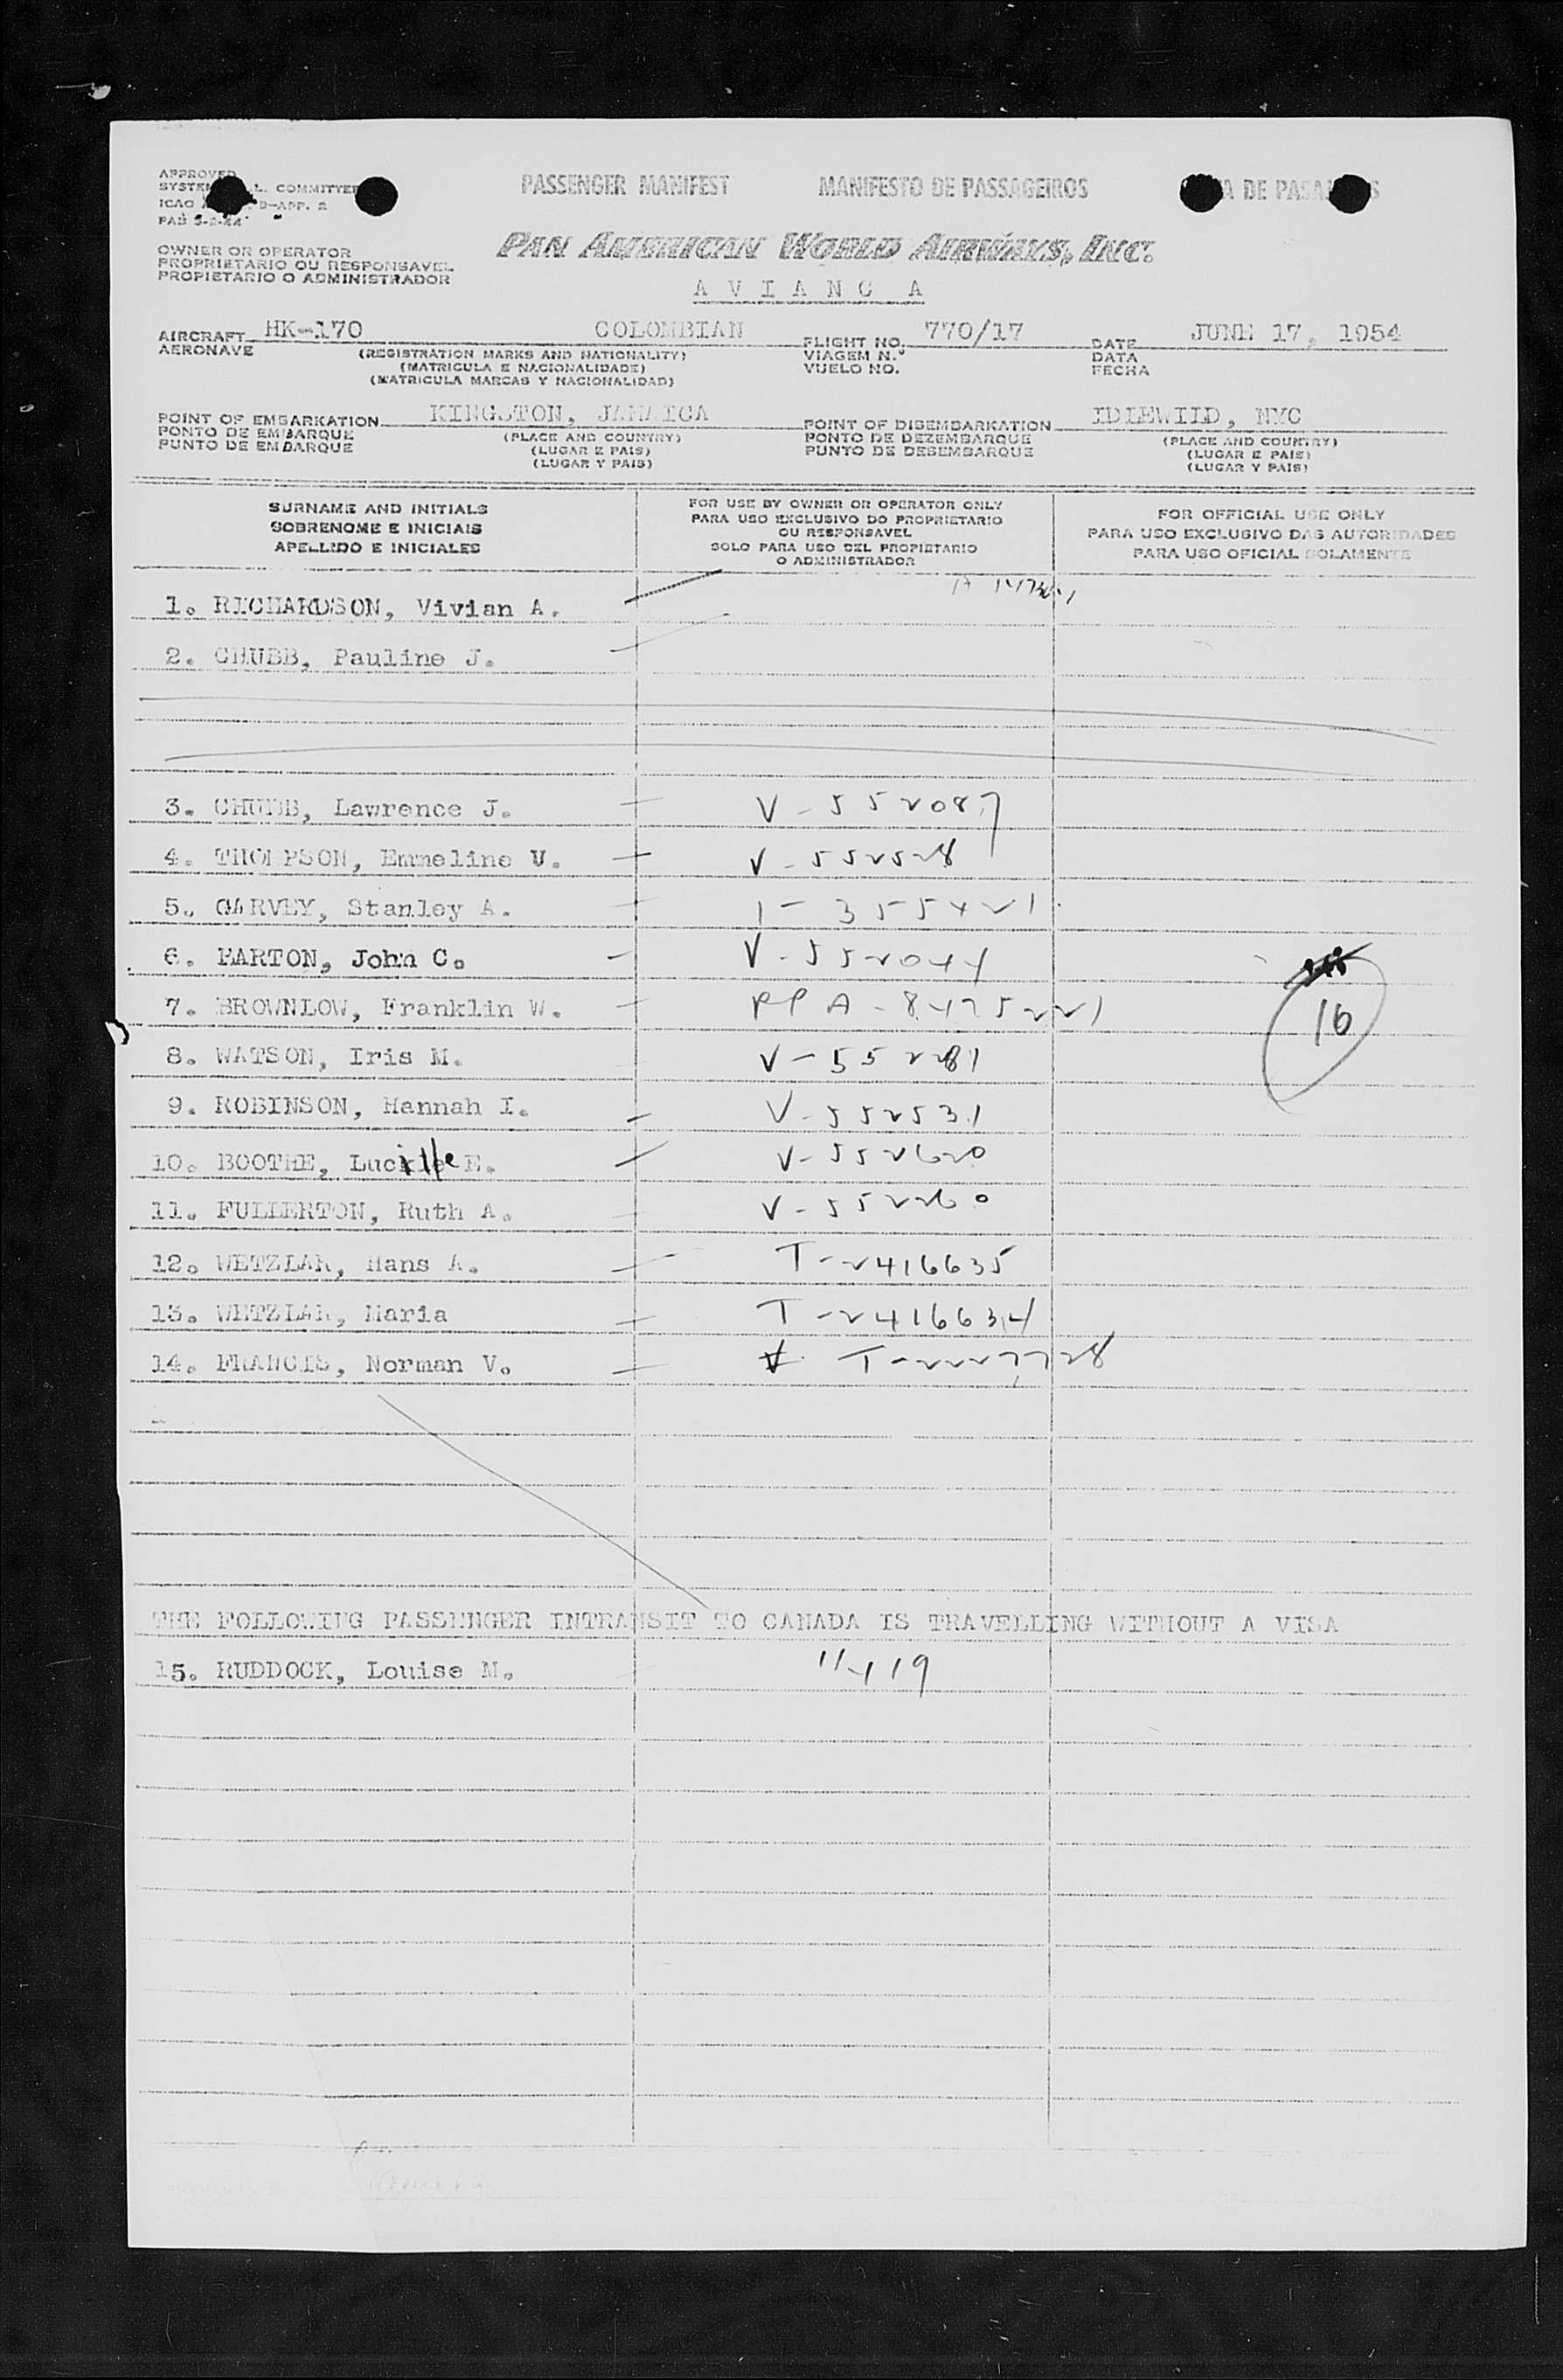 APPROVED
SYSTEM L. COMMITTEE
ICAO 9-APP. 2
PAB 5-2-44
PASSENGER MANIFEST MANIFESTO DE PASSAGEIROS A DE PASA S
OWNER OR OPERATOR
PROPRIETARIO OU RESPONSAVEL
PROPIETARIO O ADMINISTRADOR
PAN AMERICAN WORLD AIRWAYS, INC.
A V I A N C A
AIRCRAFT HK-170 COLOMBIAN FLIGHT NO. 770/17 DATE JUNE 17, 1954
AERONAVE (REGISTRATION MARKS AND NATIONALITY) VIAGEM N.º DATA
(MATRICULA E NACIONALIDADE) VUELO NO. FECHA
(MATRICULA MARCAS Y NACIONALIDAD)
POINT OF EMBARKATION KINGSTON, JAMAICA POINT OF DISEMBARKATION IDLEWILD, NYC
PONTO DE EMBARQUE (PLACE AND COUNTRY) PONTO DE DEZEMBARQUE (PLACE AND COUNTRY)
PUNTO DE EMBARQUE (LUGAR E PAIS) PUNTO DE DESEMBARQUE (LUGAR E PAIS)
(LUGAR Y PAIS) (LUGAR Y PAIS)
SURNAME AND INITIALS
SOBRENOME E INICIAIS
APELLIDO E INICIALES
FOR USE BY OWNER OR OPERATOR ONLY
PARA USO EXCLUSIVO DO PROPRIETARIO
OU RESPONSAVEL
SOLO PARA USO DEL PROPIETARIO
O ADMINISTRADOR
FOR OFFICIAL USE ONLY
PARA USO EXCLUSIVO DAS AUTORIDADES
PARA USO OFICIAL SOLAMENTE
1. RICHARDSON, Vivian A.
2. CHUBB, Pauline J.
3. CHUBB, Lawrence J. V-552087
4. THOMPSON, Emmeline U. V-552528
5. GARVEY, Stanley A. I-355421
6. BARTON, John C. V-552044
7. BROWNLOW, Franklin W. PPA-8475221
8. WATSON, Iris M. V-552281
9. ROBINSON, Hannah I. V-552531
10. BOOTHE, Lucille E. V-552620
11. FULLERTON, Ruth A. V-552260
12. WETZLAR, Hans A. T-2416635
13. WETZLAR, Maria T-2416634
14. FRANCIS, Norman V. V T-2227728
16
THE FOLLOWING PASSENGER INTRANSIT TO CANADA IS TRAVELLING WITHOUT A VISA
15. RUDDOCK, Louise M. 11419